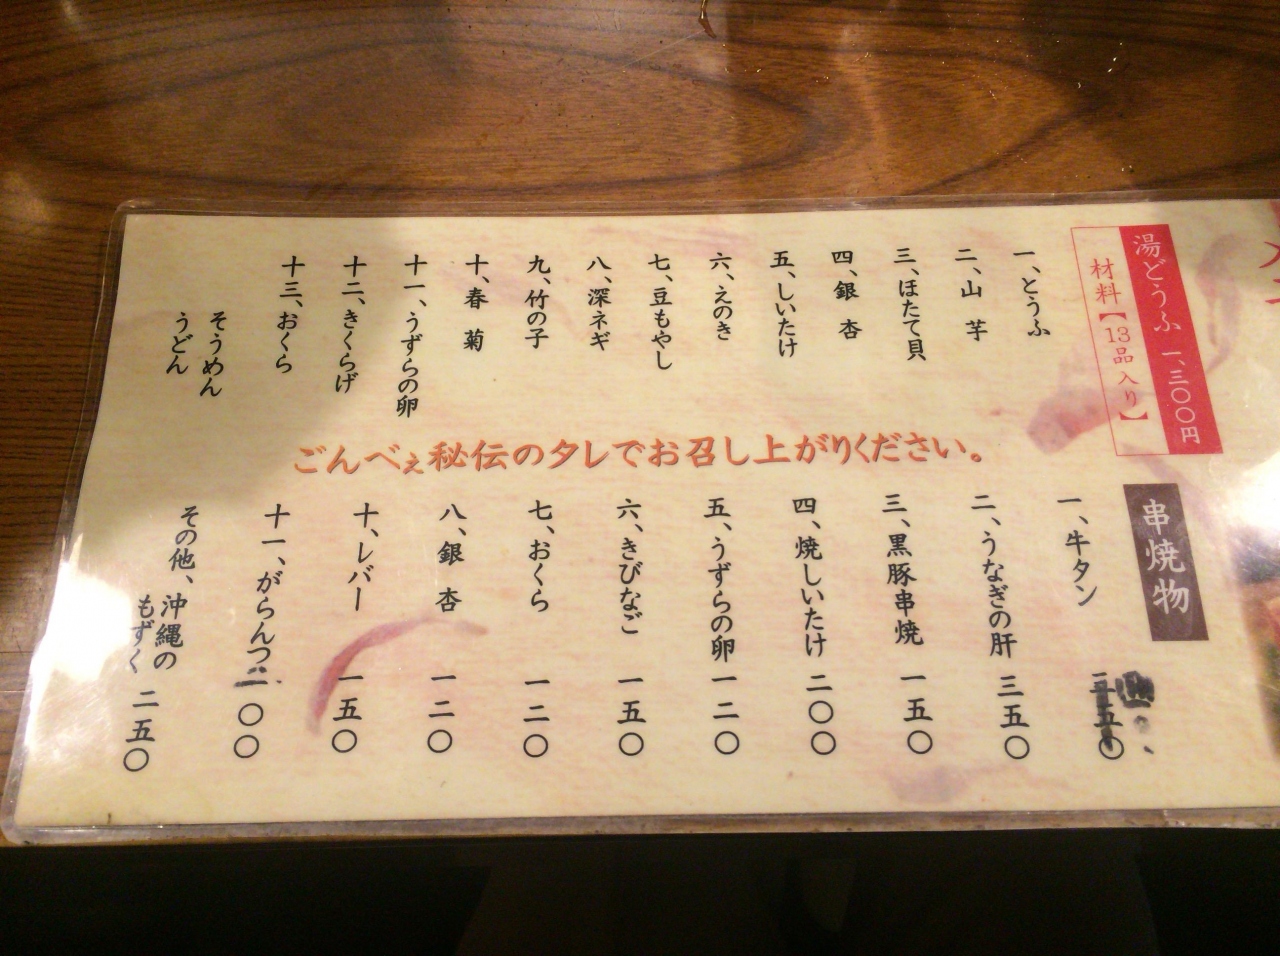 湯どうふ 一、三〇〇円
材料【13品入り】
一、とうふ
二、山 芋
三、ほたて貝
四、銀 杏
五、しいたけ
六、えのき
七、豆もやし
八、深ネギ
九、竹の子
十、春 菊
十一、うずらの卵
十二、きくらげ
十三、おくら
そうめん
うどん
ごんべぇ秘伝のタレでお召し上がりください。
串焼物
一、牛タン
二、うなぎの肝 三五〇
三、黒豚串焼 一五〇
四、焼しいたけ 二〇〇
五、うずらの卵 一二〇
六、きびなご 一五〇
七、おくら 一二〇
八、銀 杏 一二〇
十、レバー 一五〇
十一、がらんつ 〇〇
その他、沖縄の
もずく 二五〇